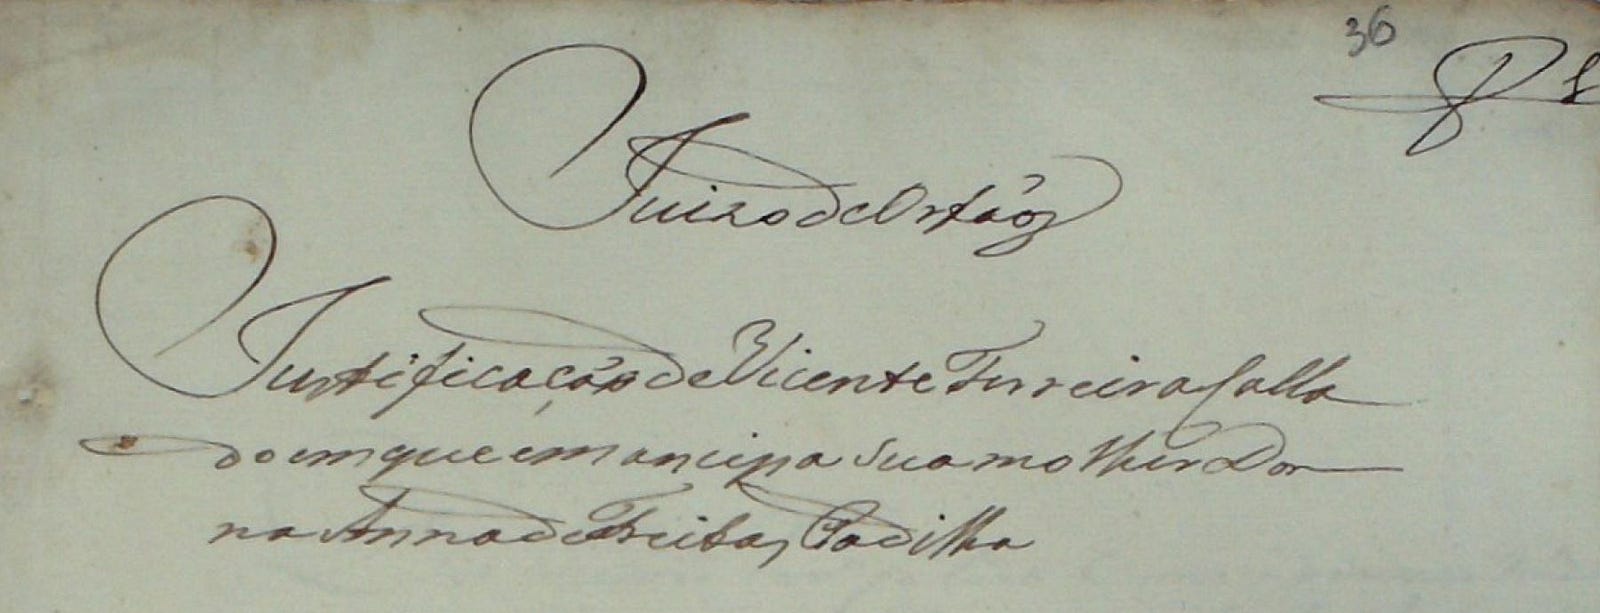 36
Juizo de Orfãos
Justificação de Vicente Ferreira Calla
do em que emancipa sua molher Do
na Anna de Freitas Padilha